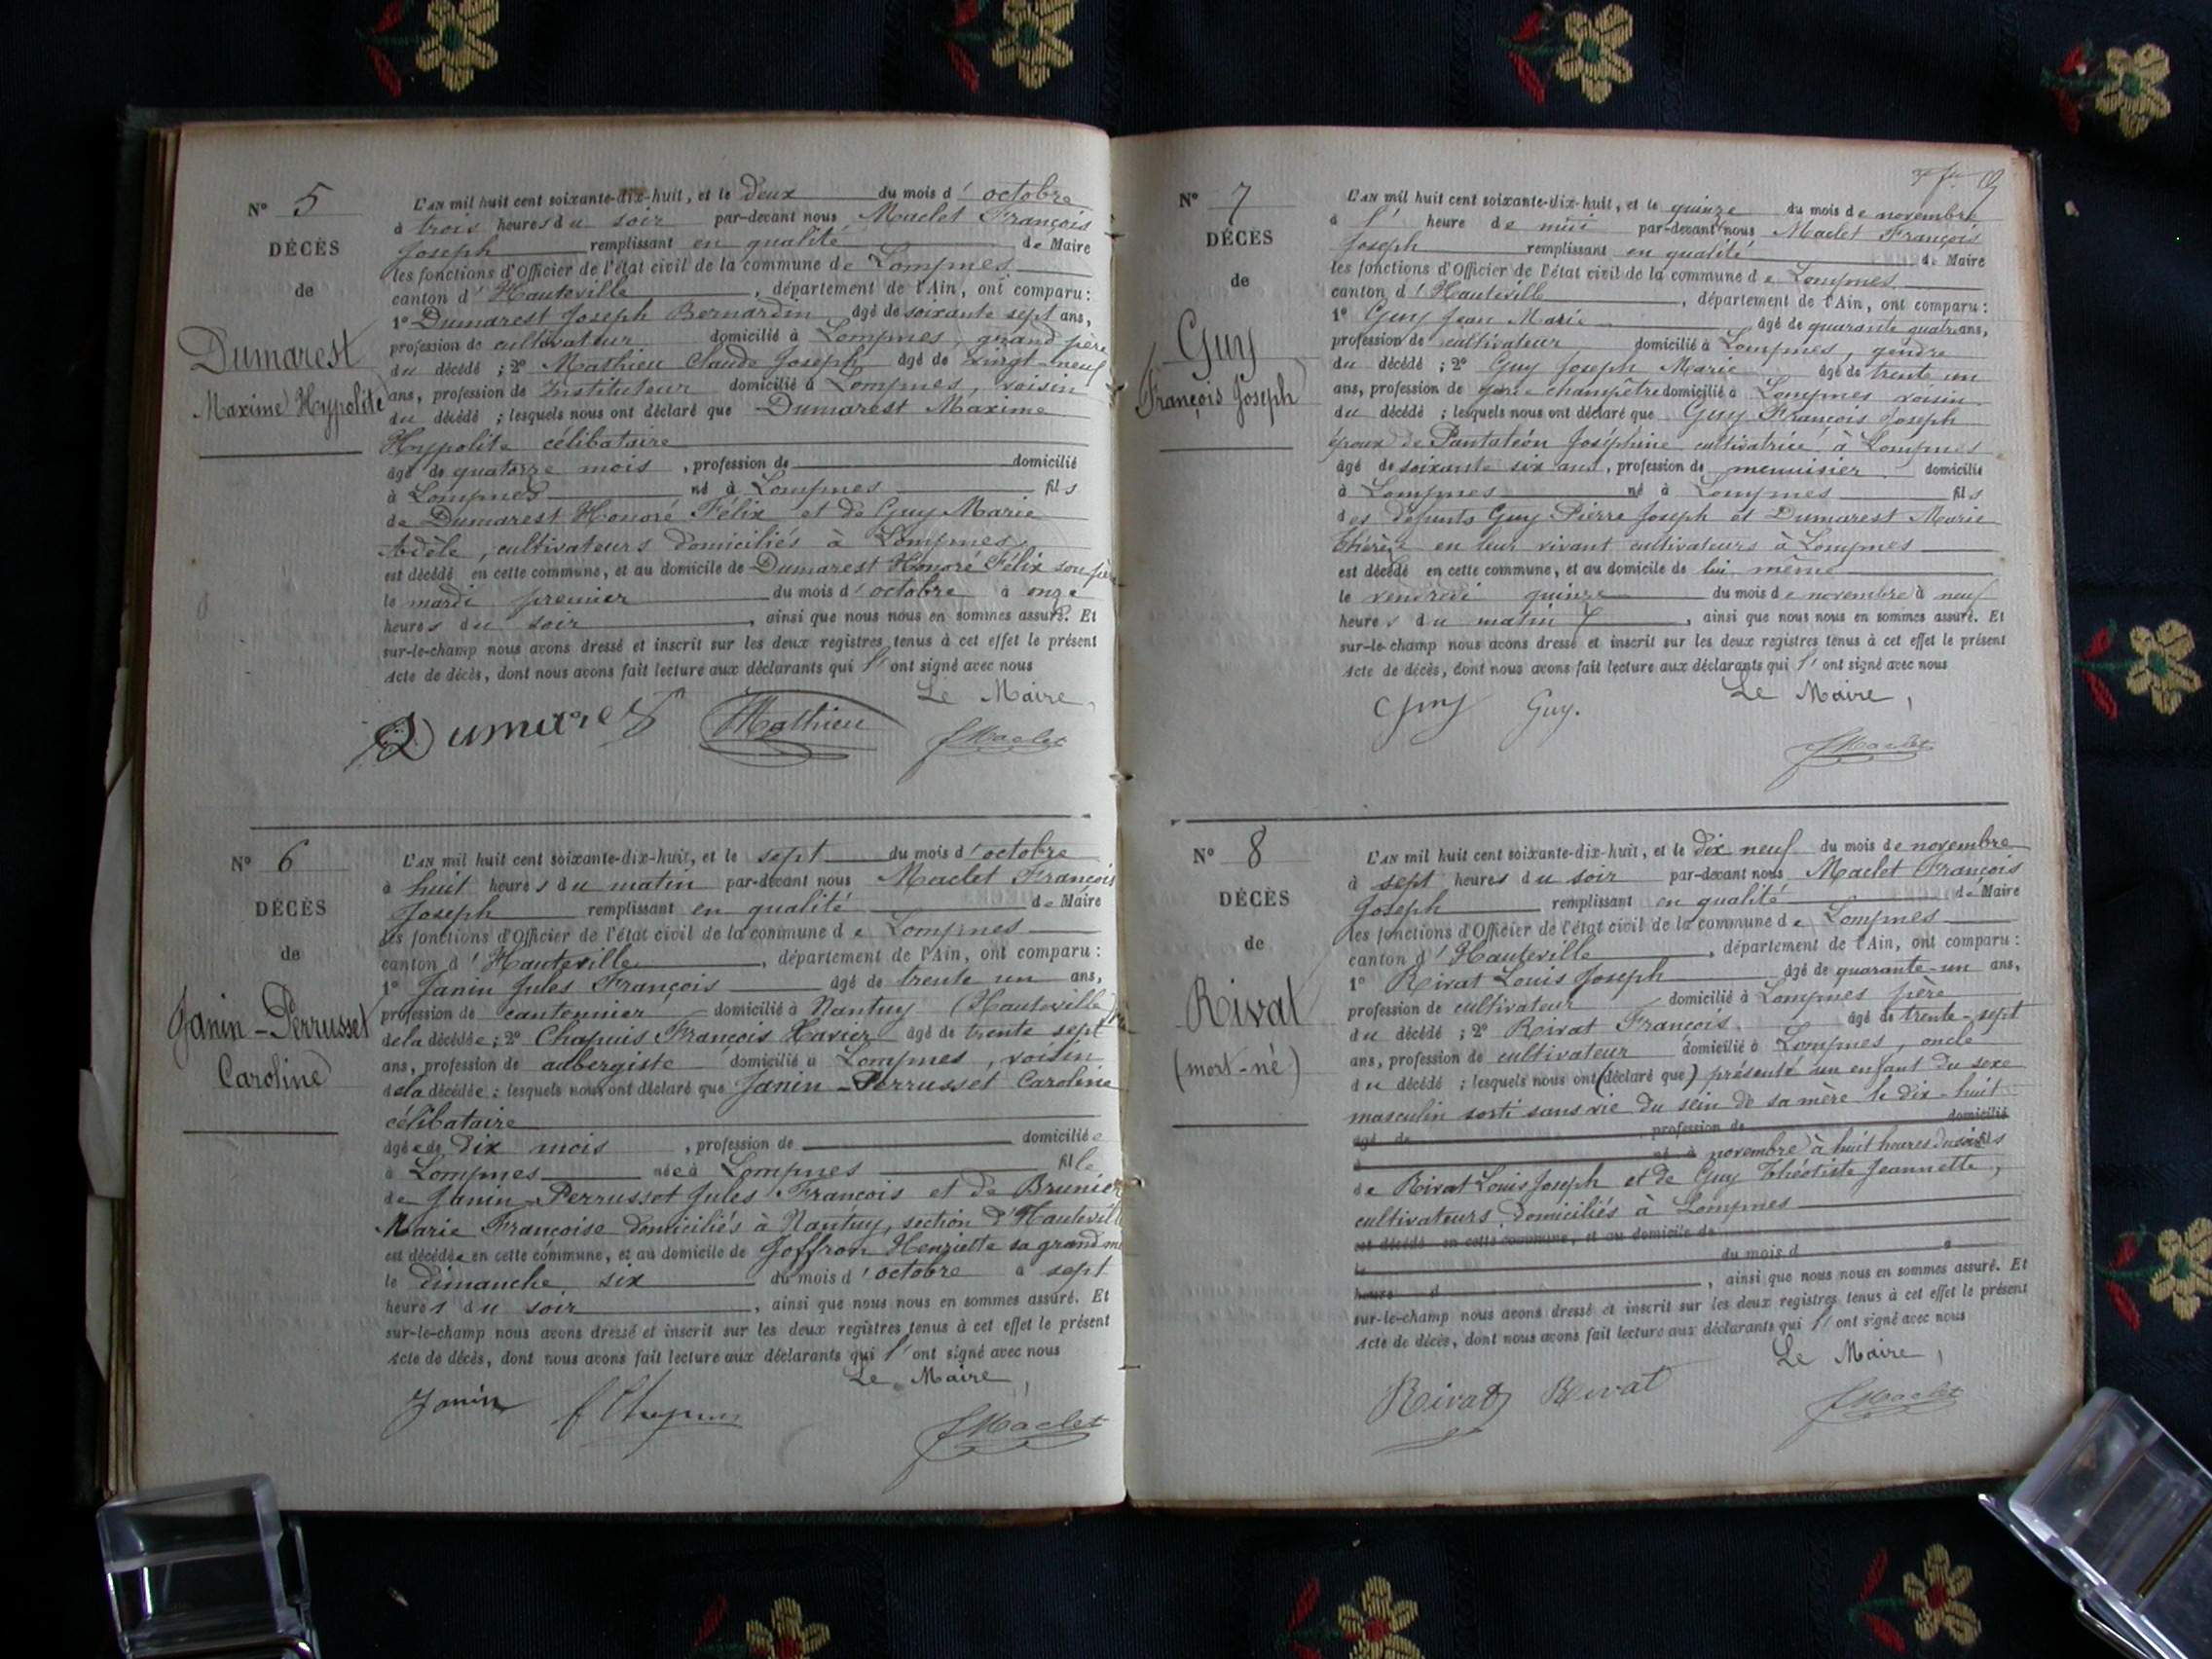 N° 5
DÉCÈS
de
Dumarest
Maxime Hypolite
L'AN mil huit cent soixante-dix-huit, et le deux du mois d'octobre
à trois heures du soir par-devant nous Maclet François
Joseph remplissant en qualité de Maire
les fonctions d'Officier de l'état civil de la commune de Lompnes
canton d'Hauteville, département de l'Ain, ont comparu:
1° Dumarest Joseph Bernardin âgé de soixante sept ans,
profession de cultivateur domicilié à Lompnes, grand père
du décédé ; 2° Mathieu Claude Joseph âgé de vingt-neuf
ans, profession de Instituteur domicilié à Lompnes, voisin
du décédé ; lesquels nous ont déclaré que Dumarest Maxime
Hypolite célibataire
âgé de quatorze mois, profession de domicilié
à Lompnes né à Lompnes fils
de Dumarest Honoré Félix et de Guy Marie
Adèle, cultivateurs domiciliés à Lompnes,
est décédé en cette commune, et au domicile de Dumarest Honoré Félix son père
le mardi premier du mois d'octobre à onze
heures du soir, ainsi que nous nous en sommes assuré. Et
sur-le-champ nous avons dressé et inscrit sur les deux registres tenus à cet effet le présent
acte de décès, dont nous avons fait lecture aux déclarants qui l'ont signé avec nous
Le Maire,
Dumarest Mathieu fMaclet
N° 6
DÉCÈS
de
Janin-Perrusset
Caroline
L'AN mil huit cent soixante-dix-huit, et le sept du mois d'octobre
à huit heures du matin par-devant nous Maclet François
Joseph remplissant en qualité de Maire
les fonctions d'Officier de l'état civil de la commune de Lompnes
canton d'Hauteville, département de l'Ain, ont comparu:
1° Janin Jules François âgé de trente un ans,
profession de cantonnier domicilié à Nantuy (Hauteville)
de la décédée ; 2° Chapuis François Xavier âgé de trente sept
ans, profession de aubergiste domicilié à Lompnes, voisin
de la décédée : lesquels nous ont déclaré que Janin-Perrusset Caroline
célibataire
âgée de dix mois, profession de domiciliée
à Lompnes née à Lompnes fille
de Janin-Perrusset Jules François et de Brunier
Marie Françoise domiciliés à Nantuy, section d'Hauteville
est décédée en cette commune, et au domicile de Joffron Henriette sa grand
le dimanche six du mois d'octobre à sept
heures du soir, ainsi que nous nous en sommes assuré. Et
sur-le-champ nous avons dressé et inscrit sur les deux registres tenus à cet effet le présent
acte de décès, dont nous avons fait lecture aux déclarants qui l'ont signé avec nous
Le Maire,
Janin fMaclet
N° 7
DÉCÈS
de
Guy
François Joseph
L'AN mil huit cent soixante-dix-huit, et le quinze du mois de novembre
à l' heure de midi par-devant nous Maclet François
Joseph remplissant en qualité de Maire
les fonctions d'Officier de l'état civil de la commune de Lompnes
canton d'Hauteville, département de l'Ain, ont comparu:
1° Guy Jean Marie âgé de quarante quatre ans,
profession de cultivateur domicilié à Lompnes, gendre
du décédé ; 2° Guy Joseph Marie âgé de trente un
ans, profession de garde champêtre domicilié à Lompnes voisin
du décédé ; lesquels nous ont déclaré que Guy François Joseph
époux de Pantaléon Joséphine cultivatrice à Lompnes
âgé de soixante six ans, profession de menuisier domicilié
à Lompnes né à Lompnes fils
des défunts Guy Pierre Joseph et Dumarest Marie
Thérèse en leur vivant cultivateurs à Lompnes
est décédé en cette commune, et au domicile de lui même
le vendredi quinze du mois de novembre à neuf
heures du matin, ainsi que nous nous en sommes assuré. Et
sur-le-champ nous avons dressé et inscrit sur les deux registres tenus à cet effet le présent
acte de décès, dont nous avons fait lecture aux déclarants qui l'ont signé avec nous
Le Maire,
Guy Guy. fMaclet
N° 8
DÉCÈS
de
Rivat
(mort-né)
L'AN mil huit cent soixante-dix-huit, et le dix neuf du mois de novembre
à sept heures du soir par-devant nous Maclet François
Joseph remplissant en qualité de Maire
les fonctions d'Officier de l'état civil de la commune de Lompnes
canton d'Hauteville, département de l'Ain, ont comparu:
1° Rivat Louis Joseph âgé de quarante-un ans,
profession de cultivateur domicilié à Lompnes père
du décédé ; 2° Rivat François âgé de trente-sept
ans, profession de cultivateur domicilié à Lompnes, oncle
du décédé ; lesquels nous ont (déclaré que) présenté un enfant du sexe
masculin sorti sans vie du sein de sa mère le dix-huit
âgé de profession de domicilié
à né à novembre à huit heures du soir fils
de Rivat Louis Joseph et de Guy Théotiste Jeannette,
cultivateurs domiciliés à Lompnes
est décédé en cette commune, et au domicile de
le du mois d à
heure d, ainsi que nous nous en sommes assuré. Et
sur-le-champ nous avons dressé et inscrit sur les deux registres tenus à cet effet le présent
acte de décès, dont nous avons fait lecture aux déclarants qui l'ont signé avec nous
Le Maire,
Rivat Rivat fMaclet